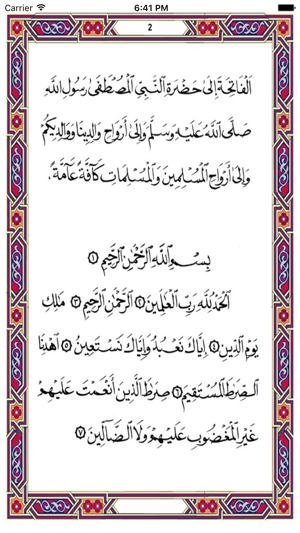 Carrier 6:41 PM
2
اَلْفَاتِحَةَ إِلَىٰ حَضْرَةِ النَّبِيِّ الْمُصْطَفَىٰ رَسُولِ اللَّهِ
صَلَّى اللَّهُ عَلَيْهِ وَسَلَّمَ وَإِلَىٰ أَرْوَاحِ وَالِدِينَا وَوَالِدِيكُمْ
وَإِلَىٰ أَرْوَاحِ الْمُسْلِمِينَ وَالْمُسْلِمَاتِ كَآفَّةً عَآمَّةً.
بِسْمِ اللَّهِ الرَّحْمَٰنِ الرَّحِيمِ ١
الْحَمْدُ لِلَّهِ رَبِّ الْعَالَمِينَ ٢ الرَّحْمَٰنِ الرَّحِيمِ ٣ مَالِكِ
يَوْمِ الدِّينِ ٤ إِيَّاكَ نَعْبُدُ وَإِيَّاكَ نَسْتَعِينُ ٥ اهْدِنَا
الصِّرَاطَ الْمُسْتَقِيمَ ٦ صِرَاطَ الَّذِينَ أَنْعَمْتَ عَلَيْهِمْ
غَيْرِ الْمَغْضُوبِ عَلَيْهِمْ وَلَا الضَّالِّينَ ٧